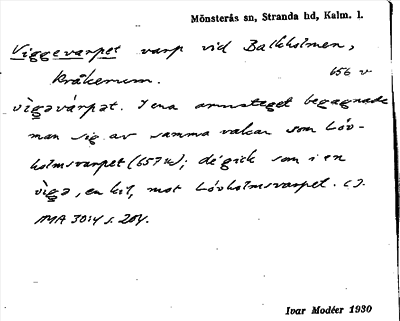 Mönsterås sn, Stranda hd, Kalm. l.
Viggevarpet varp vid Balkholmen,
Kråkerum. 656 v
vìgavárpat. I ena arnnstaget begagnade
man sig av samma vakar som Löv-
holmsvarpet (657 v); dé gick som i en
vìga, en kil, mot Lövholmsvarpet. (J.
MA 30:4 s. 204.
Ivar Modéer 1930